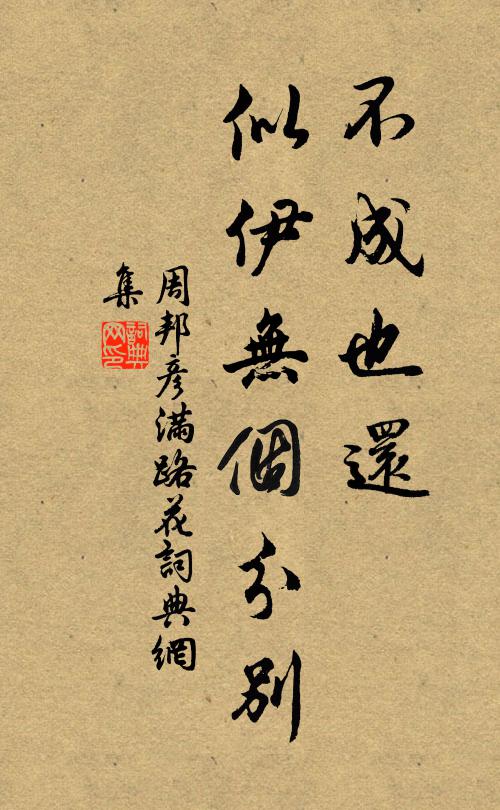 不成也還
似伊無個分別
周邦彥滿路花詞典網
集
詞典
网印